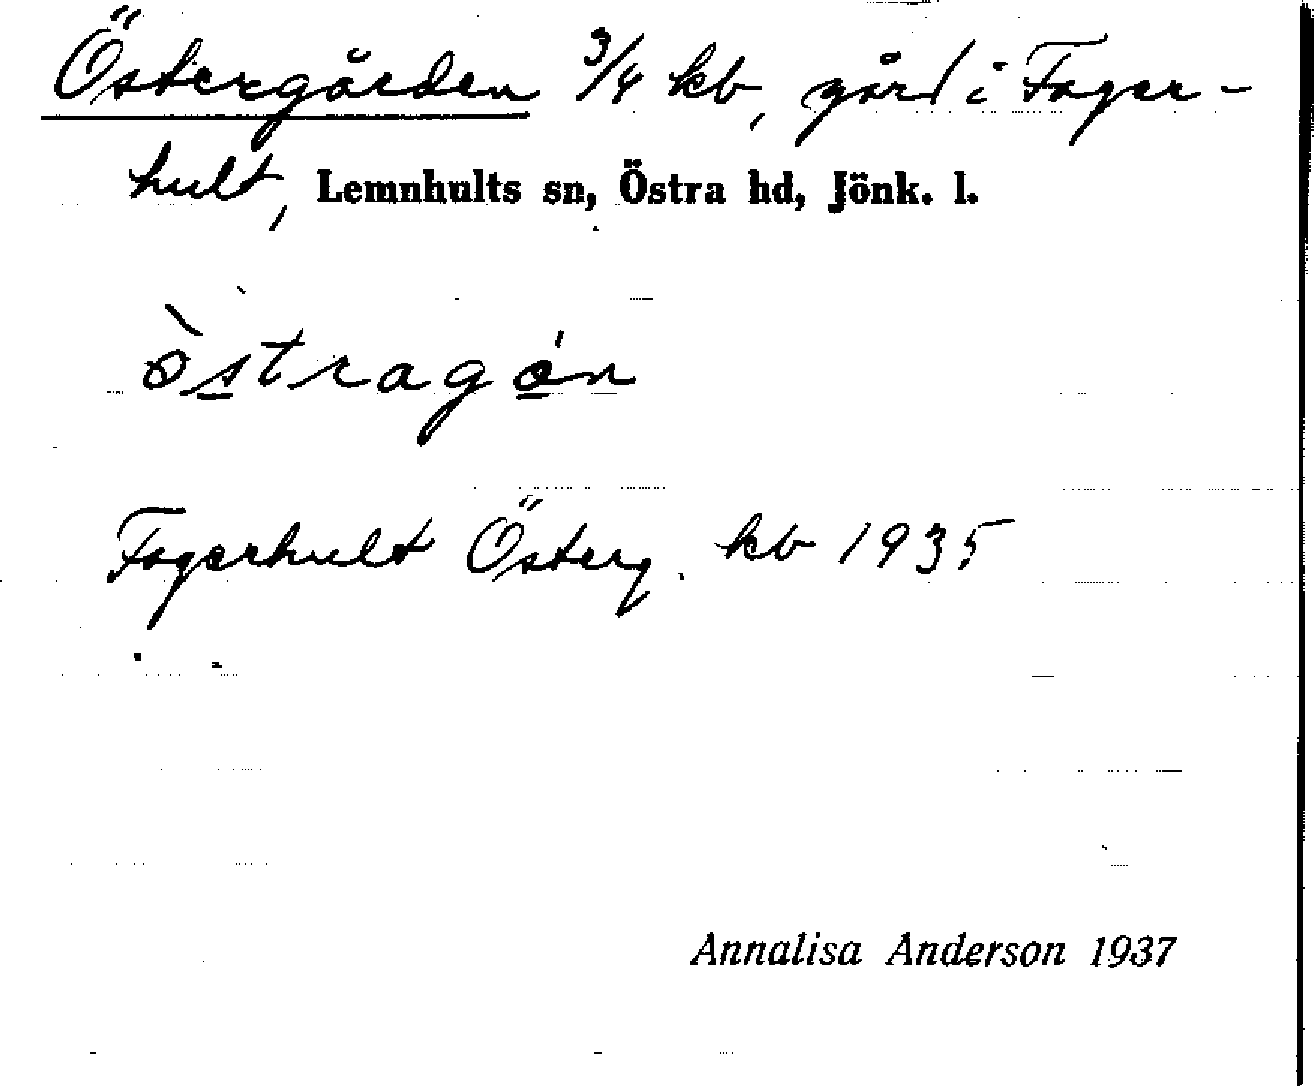 Östergården 3/4 kb, gård i Fager-
hult, Lemnhults sn, Östra hd, Jönk. l.
òstragón
Fagerhult Österg. kb 1935
Annalisa Anderson 1937